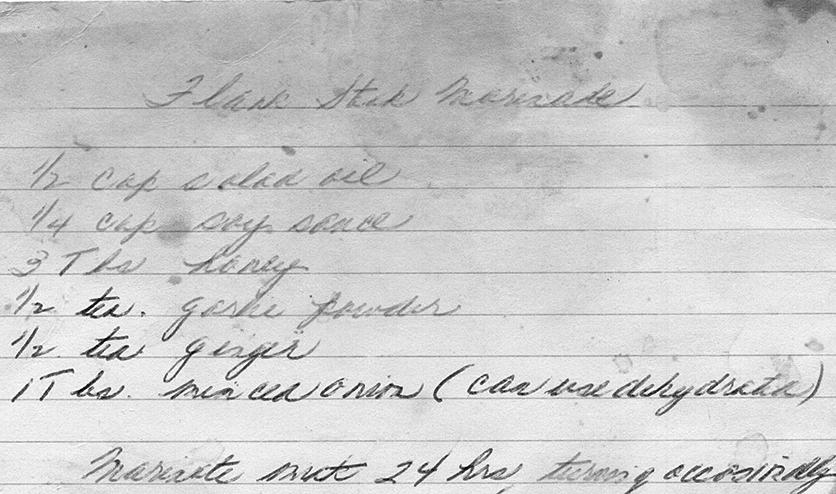 Flank Steak Marinade
1/2 cup salad oil
1/4 cup soy sauce
3 Tbs honey
1/2 tea. garlic powder
1/2 tea ginger
1 Tbs. minced onion (can use dehydrated)
Marinate meat 24 hrs turning occasionally